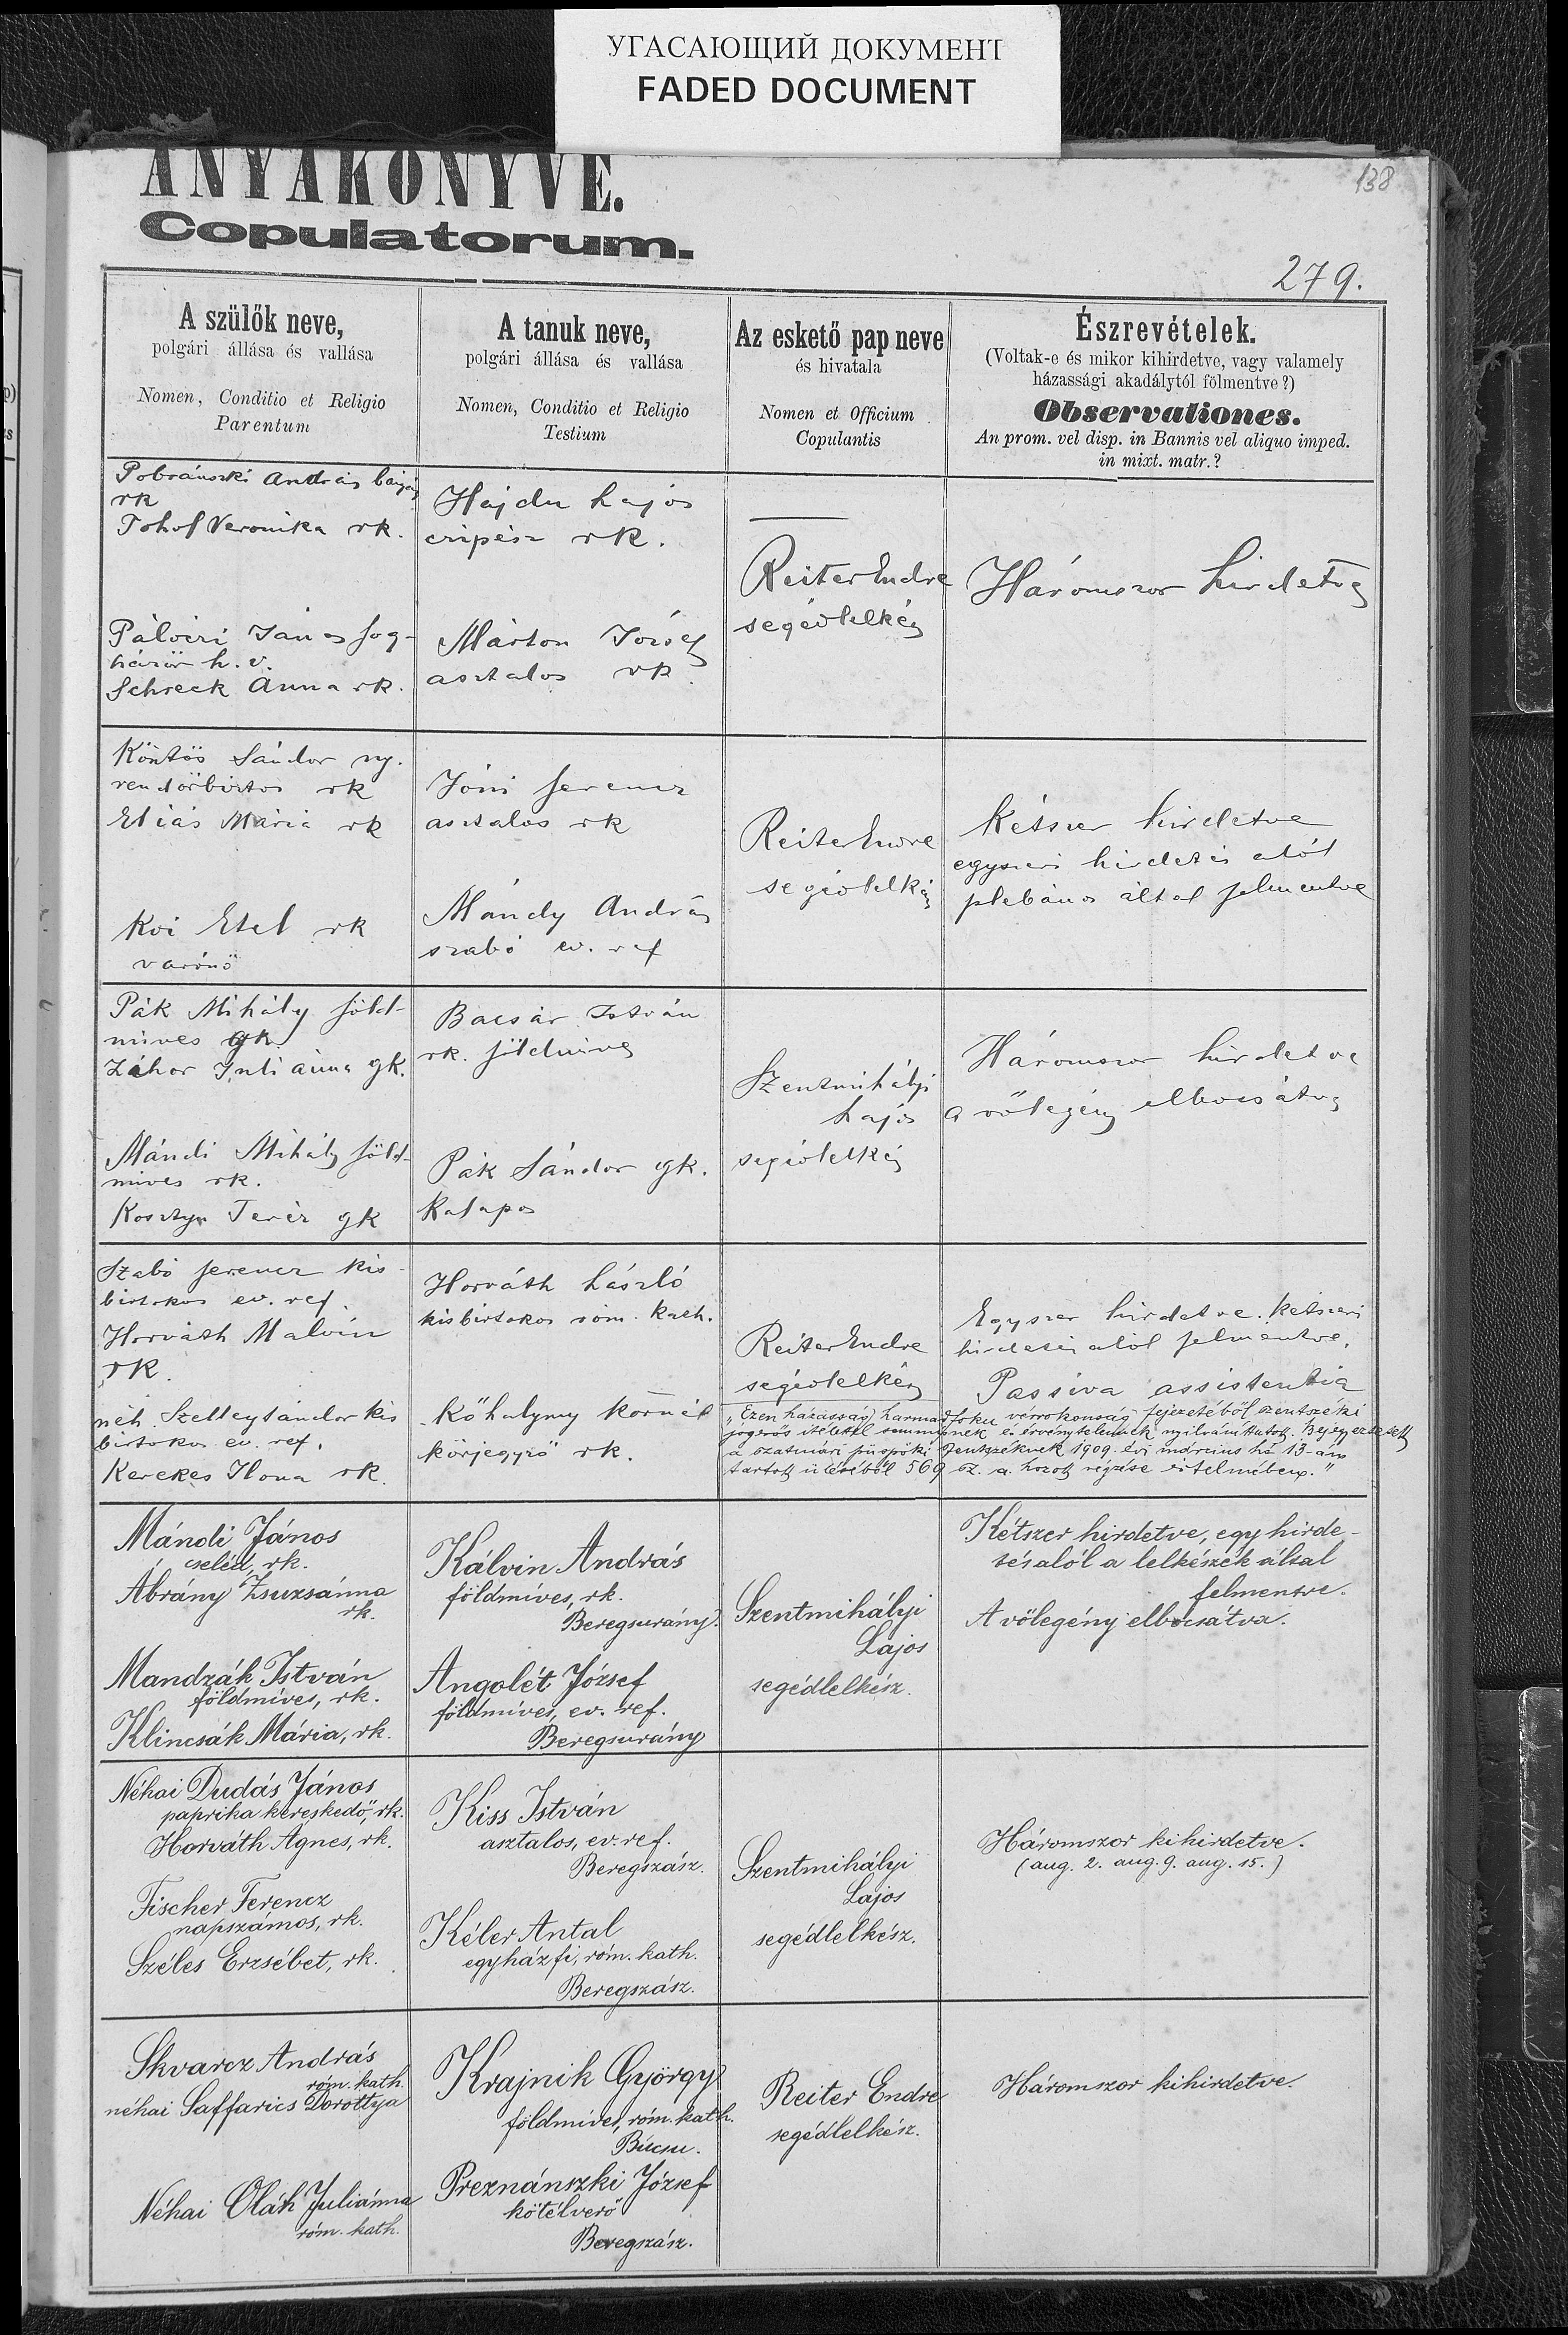 УГАСАЮЩИЙ ДОКУМЕНТ
FADED DOCUMENT
138
ANYAKÖNYVE.
Copulatorum.
279.
A szülők neve,
polgári állása és vallása
Nomen, Conditio et Religio
Parentum
A tanuk neve,
polgári állása és vallása
Nomen, Conditio et Religio
Testium
Az eskető pap neve
és hivatala
Nomen et Officium
Copulantis
Észrevételek.
(Voltak-e és mikor kihirdetve, vagy valamely
házassági akadálytól fölmentve?)
Observationes.
An prom. vel disp. in Bannis vel aliquo imped.
in mixt. matr.?
Pobránszki András
rk
Veronika rk.
Pálvéri János fog-
házőr h. v.
Schreck Anna rk.
Hajdu Lajos
czipész rk.
Márton József
asztalos rk.
Reiter Endre
segédlelkész
Háromszor hirdetve
Köntös Sándor ny.
rendőrbiztos rk
Eliás Mária rk
Kói Etel rk
varónő
Jóni Ferencz
asztalos rk
Mándy András
szabó ev. ref
Reiter Endre
segédlelkész
Kétszer hirdetve
egyszeri hirdetés alól
plebános által felmentve
Pák Mihály föld-
míves gk.
Záhor Juliánna gk.
Mándi Mihály föld-
míves rk.
Kosztyu Teréz gk
Bacsár István
rk. földmíves
Pák Sándor gk.
Kalapos
Szentmihályi
Lajos
segédlelkész
Háromszor hirdetve
a vőlegény elbocsátva
Szabó Ferencz kis-
birtokos ev. ref.
Horváth Malvin
rk.
néh. Szelley Sándor kis
birtokos ev. ref.
Kerekes Ilona rk.
Horváth László
kisbirtokos róm. kath.
Kőhalymy Kornél
körjegyző rk.
Reiter Endre
segédlelkész
Egyszer hirdetve. kétszeri
hirdetés alól felmentve.
Passiva assistentia
„Ezen házasság harmadfoku vérrokonság fejezetéből szentszéki
jogerős itélettel semmisnek és érvénytelennek nyilvánittatott. Bejegyeztetett
a szatmári püspöki szentszéknek 1909. évi március hó 13-án
tartott üléséből 569 sz. a. hozott végzése értelmében."
Mándi János
cseléd, rk.
Ábrány Zsuzsánna
rk.
Mandzák István
földmíves, rk.
Klincsák Mária, rk.
Kálvin András
földmíves, rk.
Beregsurány.
Angolét József
földmíves, ev. ref.
Beregsurány
Szentmihályi
Lajos
segédlelkész.
Kétszer hirdetve, egy hirde-
tés alól a lelkészek által
felmentve.
A vőlegény elbocsátva.
Néhai Dudás János
paprika kereskedő, rk.
Horváth Ágnes, rk.
Fischer Ferencz
napszámos, rk.
Széles Erzsébet, rk.
Kiss István
asztalos, ev. ref.
Beregszász.
Kéler Antal
egyházfi, róm. kath.
Beregszász.
Szentmihályi
Lajos
segédlelkész.
Háromszor kihirdetve.
(aug. 2. aug. 9. aug. 15.)
Skvarcz András
róm. kath.
néhai Saffarics Dorottya
Néhai Oláh Juliánna
róm. kath.
Krajnik György
földmíves, róm. kath.
Búcsu.
Preznánszki József
kötélverő
Beregszász.
Reiter Endre
segédlelkész.
Háromszor kihirdetve.